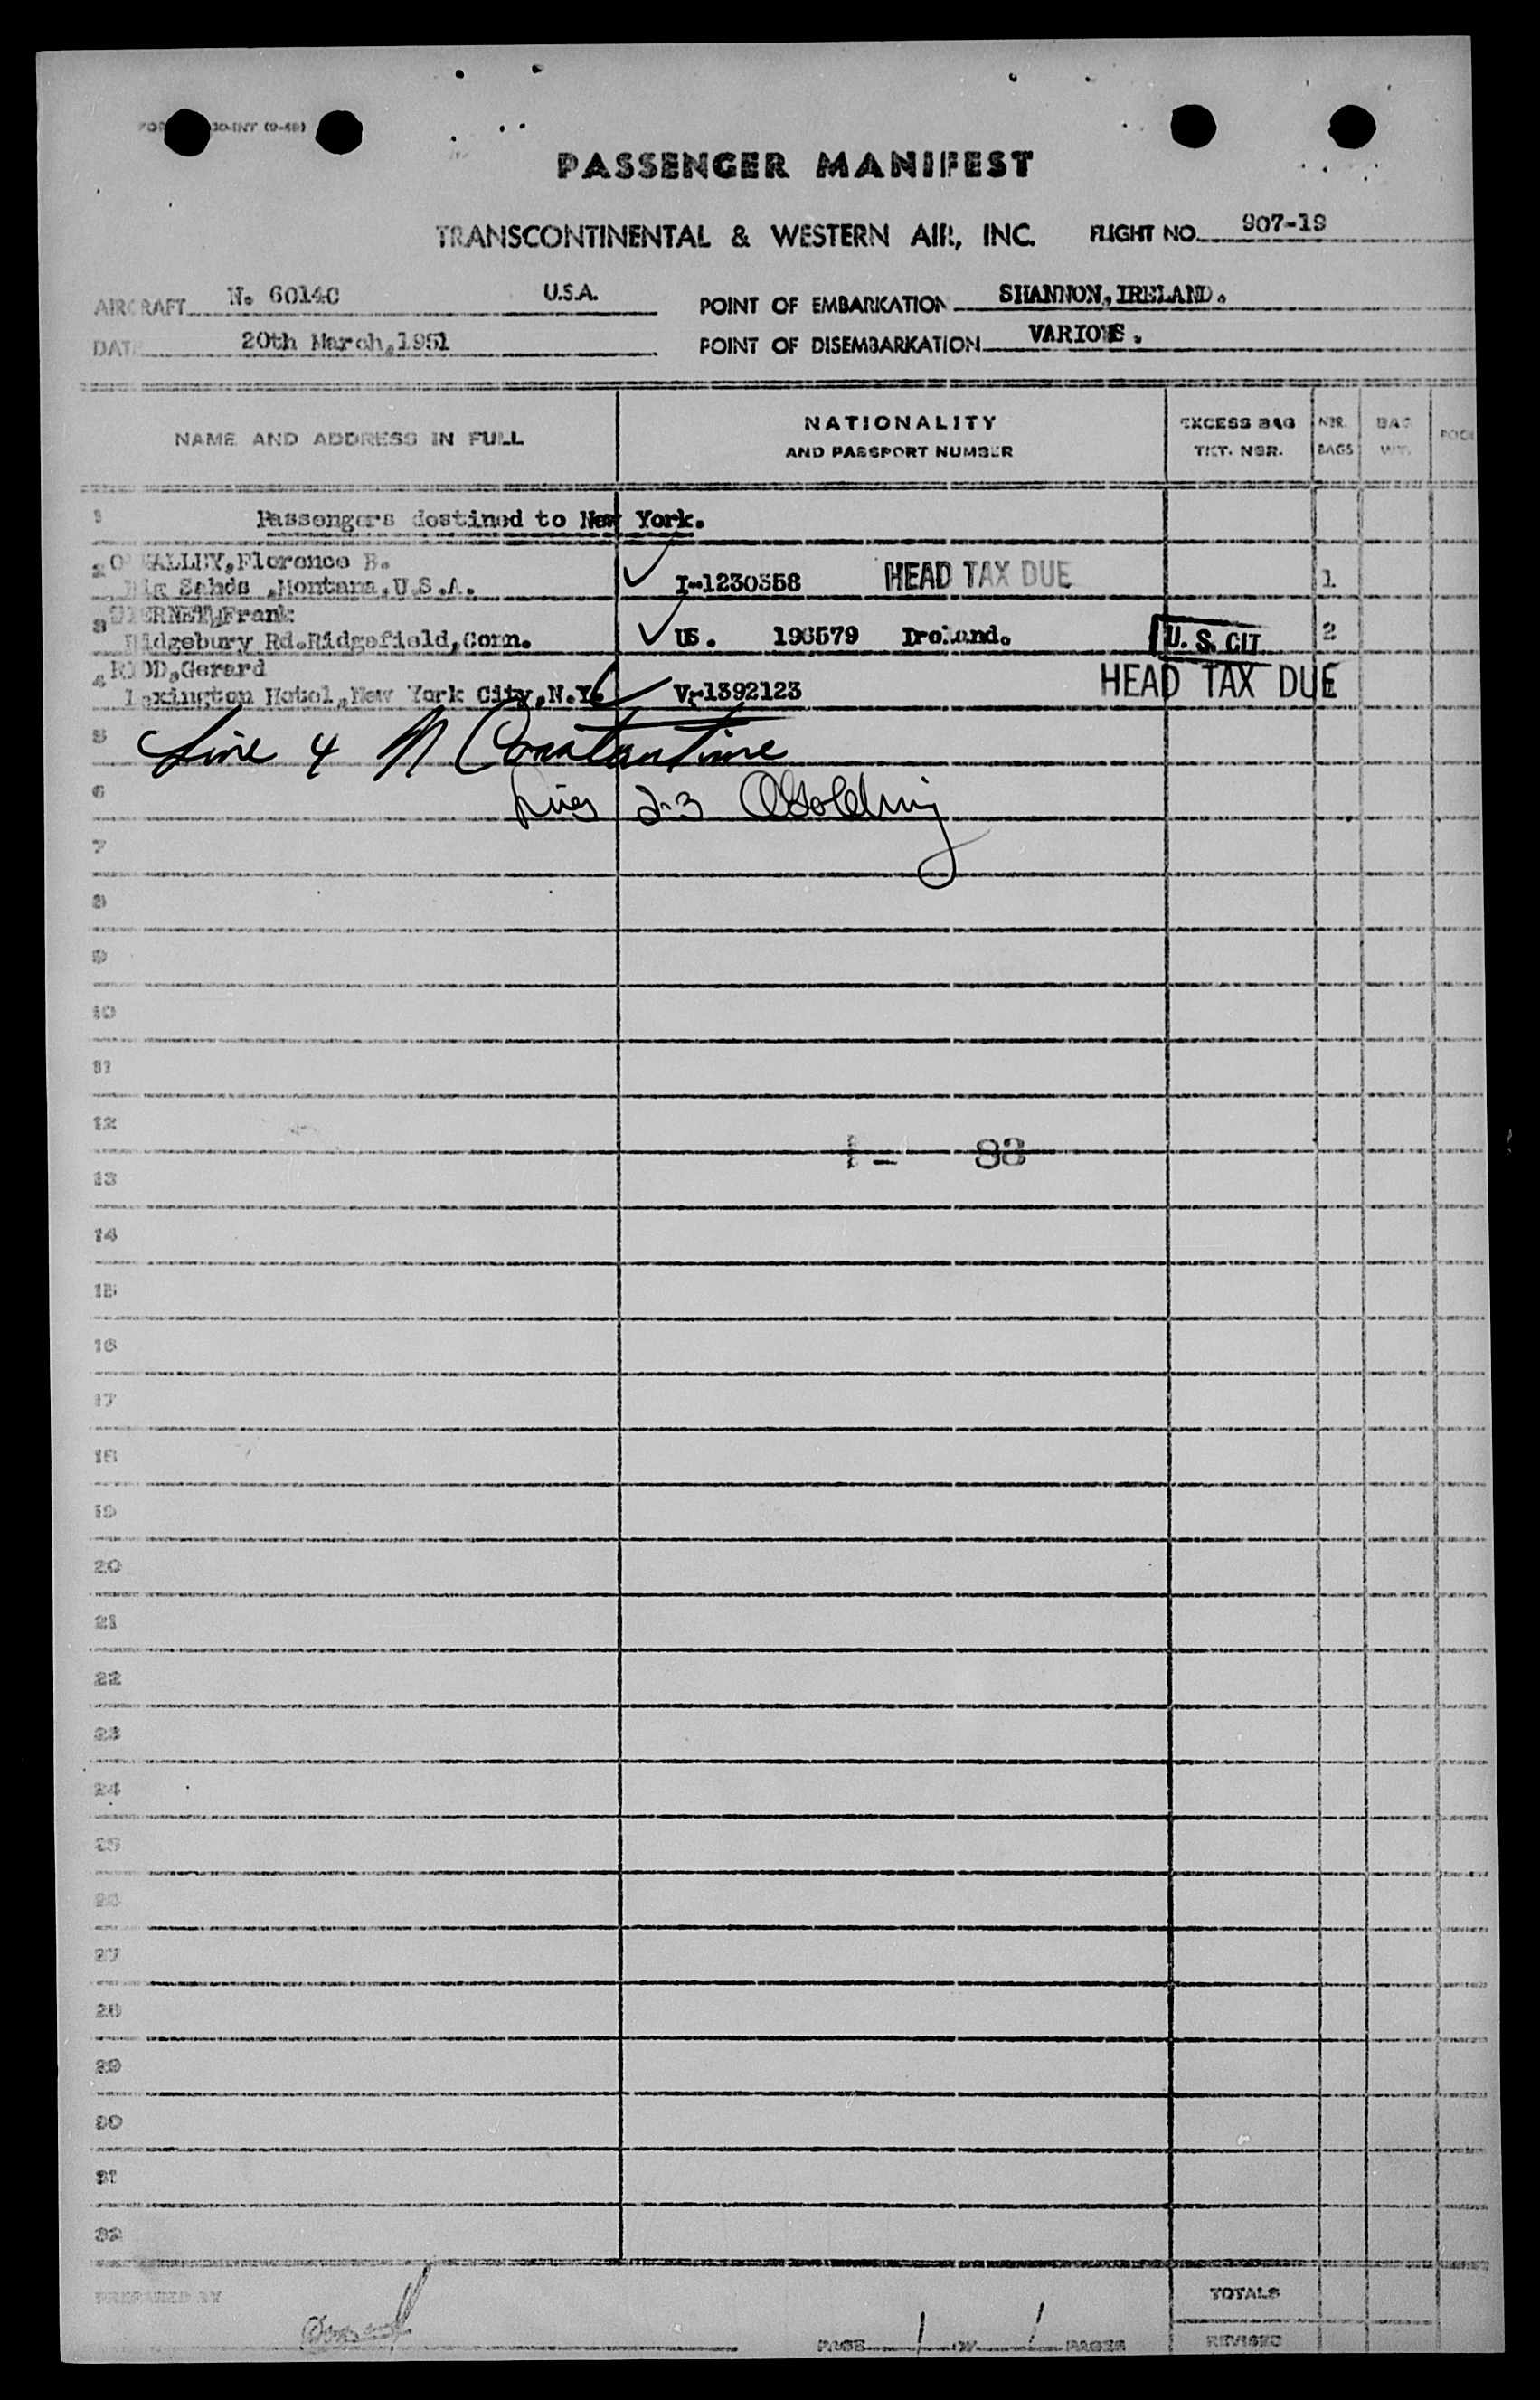 30-INT (9-48)
PASSENGER MANIFEST
TRANSCONTINENTAL & WESTERN AIR, INC. FLIGHT NO. 907-19
AIRCRAFT N. 6014C U.S.A. POINT OF EMBARKATION SHANNON, IRELAND.
DATE 20th March, 1951 POINT OF DISEMBARKATION VARIOUS.
NAME AND ADDRESS IN FULL NATIONALITY AND PASSPORT NUMBER EXCESS BAG TKT. NBR. NBR. BAGS BAG WT.
1 Passengers destined to New York.
2 O'MALLEY, Florence B.
Montana, U.S.A. I-1230358 HEAD TAX DUE 1
3 Frank
Ridgebury Rd. Ridgefield, Conn. US. 196579 Ireland. U. S. CIT 2
4 Gerard
Lexington Hotel, New York City, N.Y. V-1392123 HEAD TAX DUE
5 Line 4 N Constantine
6 Lines 2-3 Golding
7
8
9
10
11
12
1 - 83
13
14
15
16
17
18
19
20
21
22
23
24
25
26
27
28
29
30
31
32
PREPARED BY TOTALS
PAGE 1 OF 1 PAGES REVISED